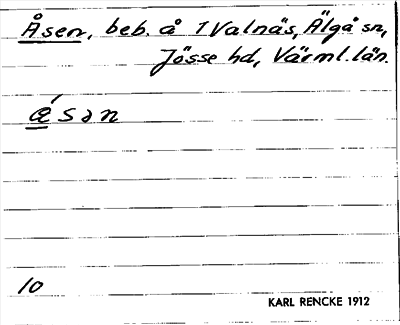 Åsen, beb. å 1 Valnäs, Älgå sn,
Jösse hd, Värml. län.
ǽsən
10
KARL RENCKE 1912